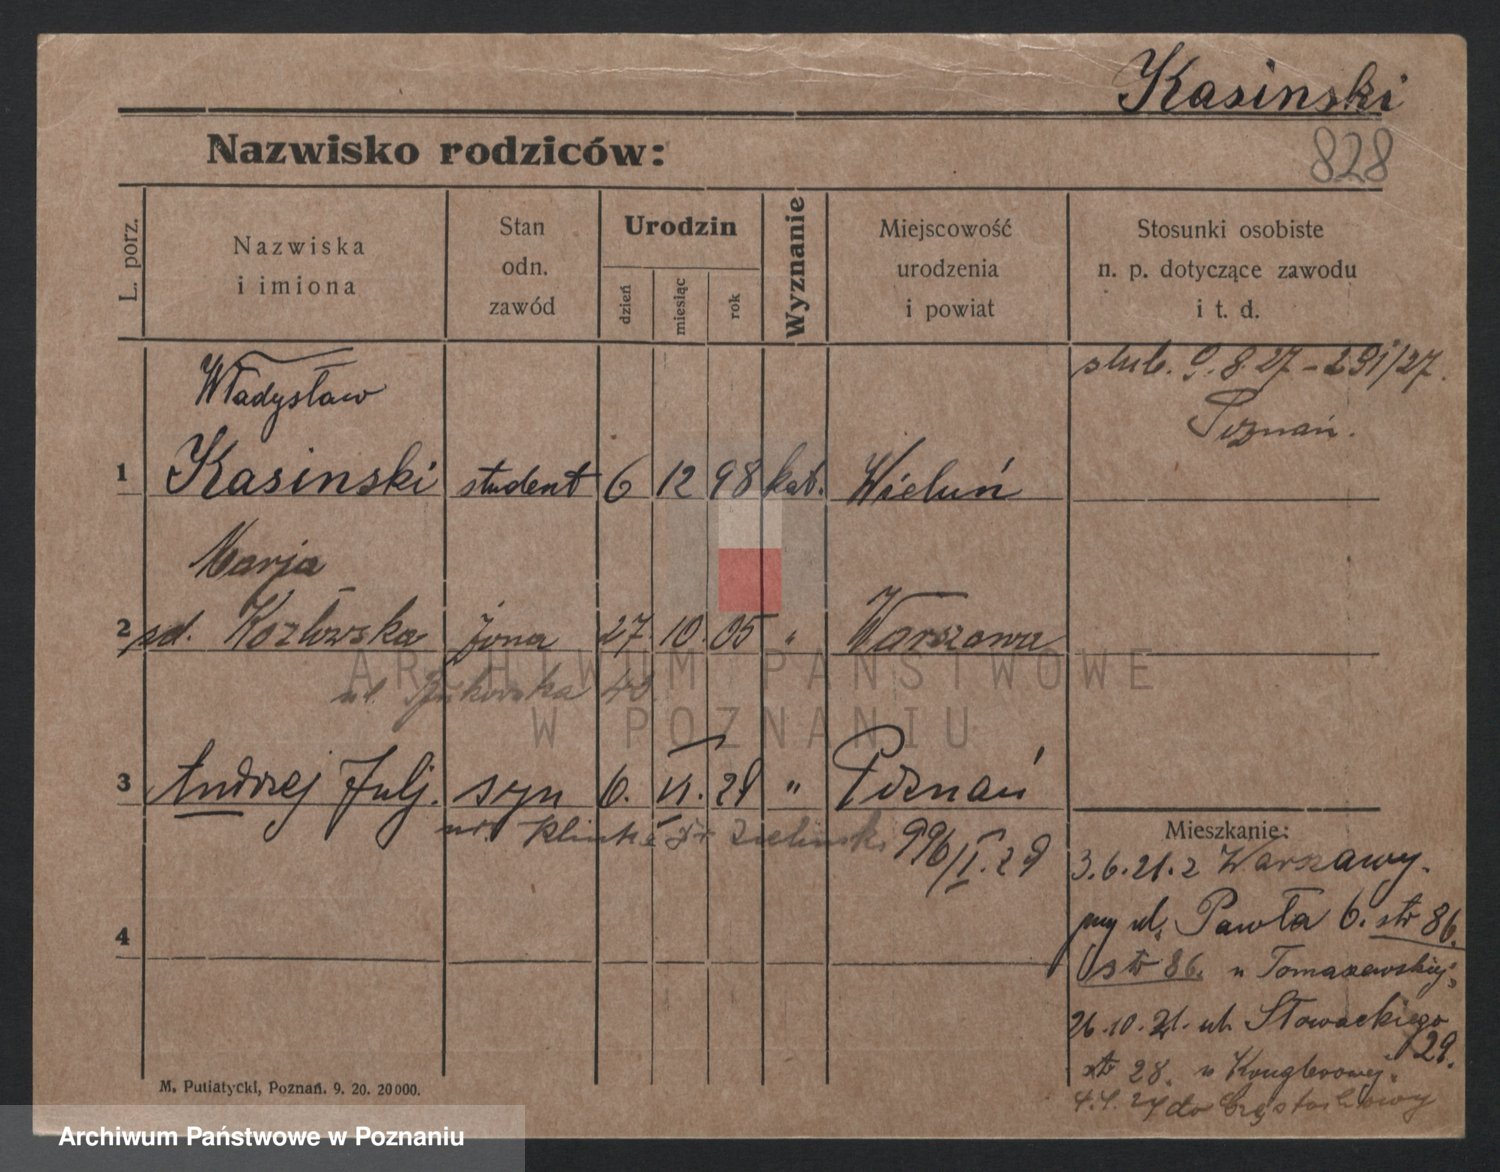 Kasinski
Nazwisko rodziców:
828
L. porz.
Nazwiska
i imiona
Stan
odn.
zawód
Urodzin
dzień
miesiąc
rok
Wyznanie
Miejscowość
urodzenia
i powiat
Stosunki osobiste
n. p. dotyczące zawodu
i t. d.
ślub. 9.8.27 - 291/27.
Poznań.
Władysław
1 Kasinski student 6 12 98 kat. Wieluń
Marja
2 zd. Kozłowska żona 27. 10. 05 " Warszawa
ul. 
3 Andrzej Julj. syn 6. VI. 28 " Poznań
Mieszkanie:
3.6.21. z Warszawy.
przy ul. Pawła 6. str 86.
str 86. u Tomaszewskiej.
26.10.21. ul. Słowackiego
29.
str 28. u
do Częstochowy
4
M. Putiatycki, Poznań. 9. 20. 20000.
ARCHIWUM PAŃSTWOWE
W POZNANIU
Archiwum Państwowe w Poznaniu